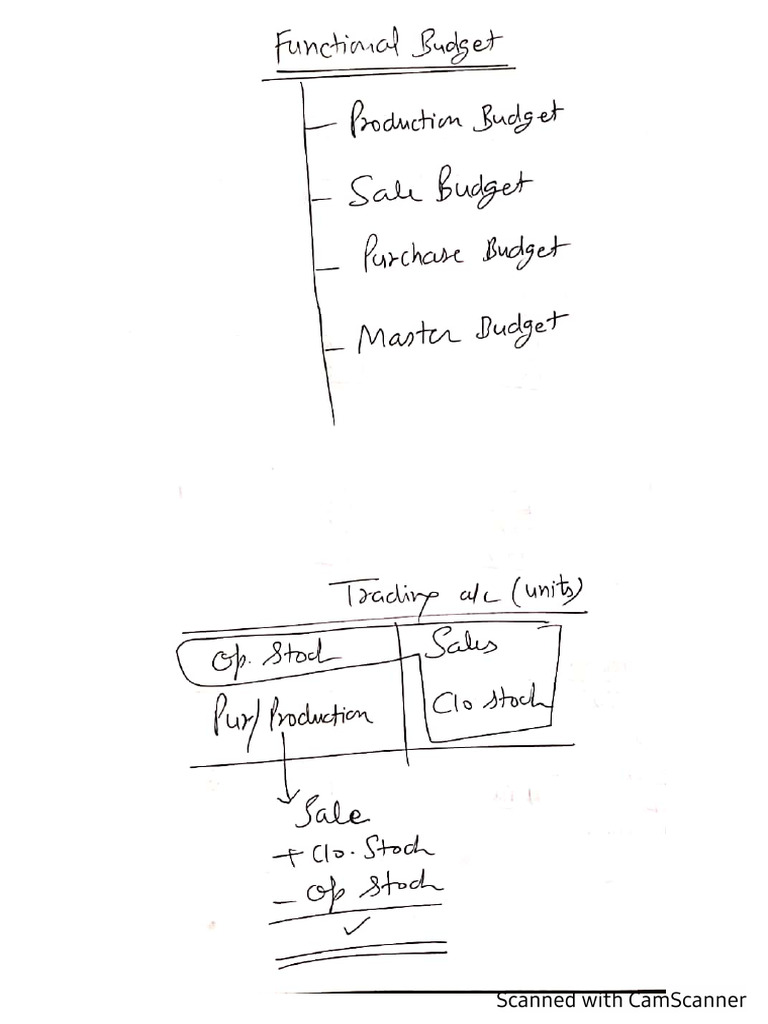 Functional Budget
Production Budget
Sale Budget
Purchase Budget
Master Budget
Trading a/c (units)
Op. Stock Sales
Pur/Production Clo Stock
Sale
+ Clo. Stock
- Op Stock
✓
Scanned with CamScanner